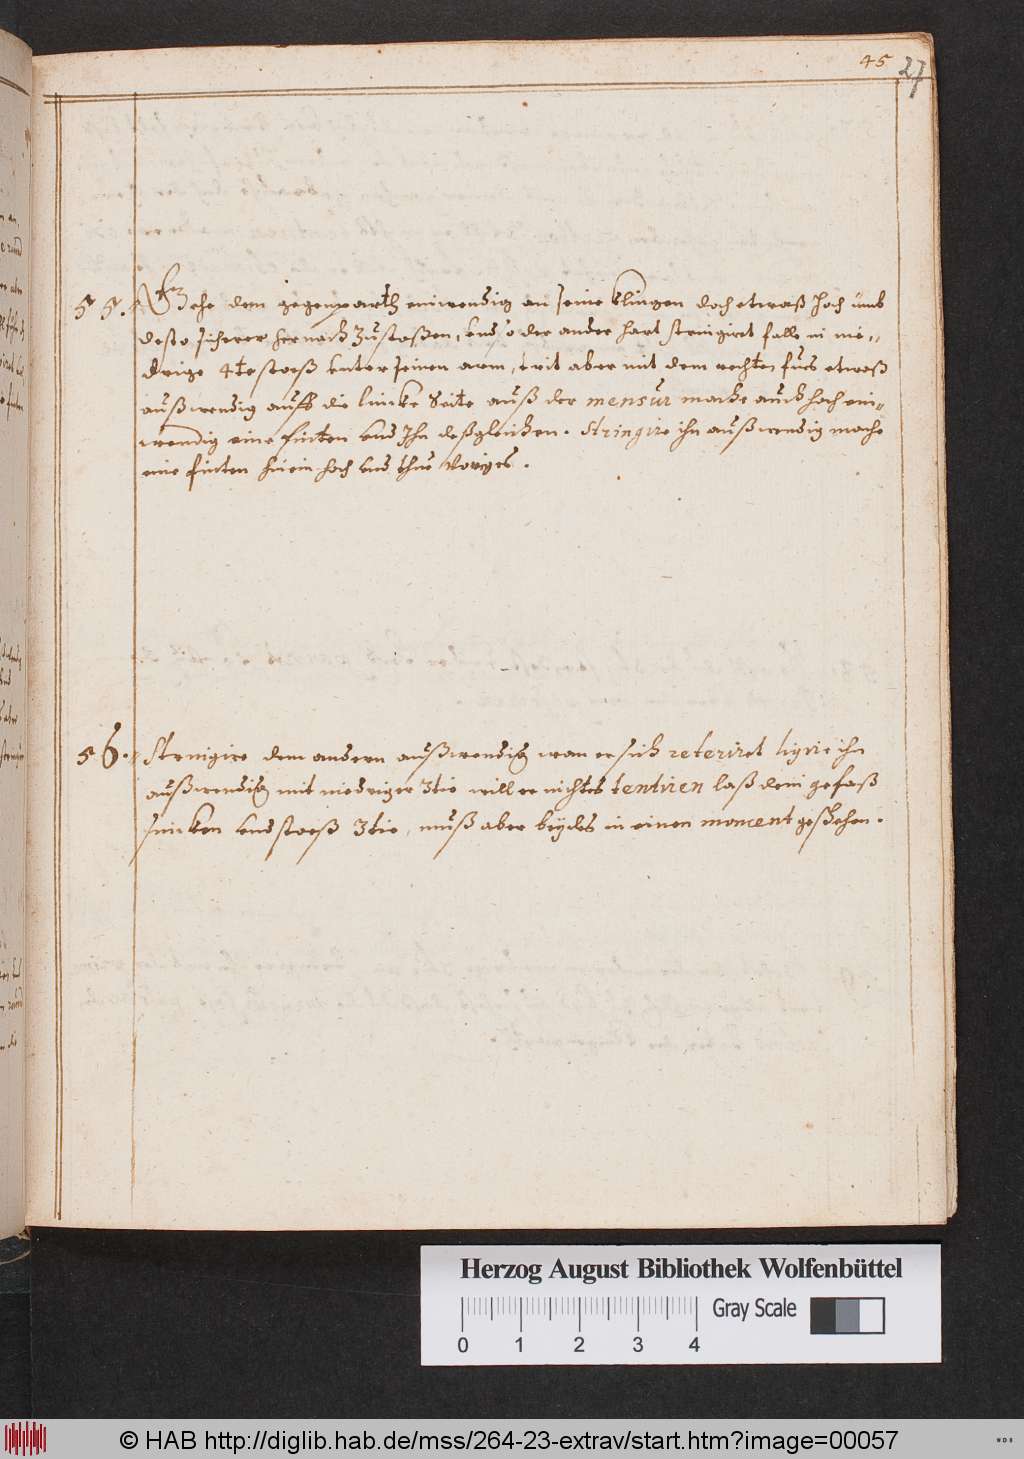 45 27
55. Gehe dem gegenparth einwendig an seine klingen doch etwaß hoch umb
desto sicherer hernach zustoßen, und so der ander hart stringiret falle in nie-
drige 4te stoeß unter seinen arm, trit aber mit dem rechten fues etwaß
außwendig aufs die lincke Seite auß der mensur mache auch hoch ein-
wendig eine finten und Ihn deßgleichen. Stringire ihn außwendig mache
eine finten hinein hoch und thue Voriges.
56. Stringire dem andern außwendig wan er sich reteriret ligire ihn
außwendig mit niedriger 3tie will er nichtes tentiren laß dein gefaß
sincken und stoeß 3tie, muß aber beydes in einen moment geschehen.
Herzog August Bibliothek Wolfenbüttel
0 1 2 3 4
Gray Scale
© HAB http://diglib.hab.de/mss/264-23-extrav/start.htm?image=00057